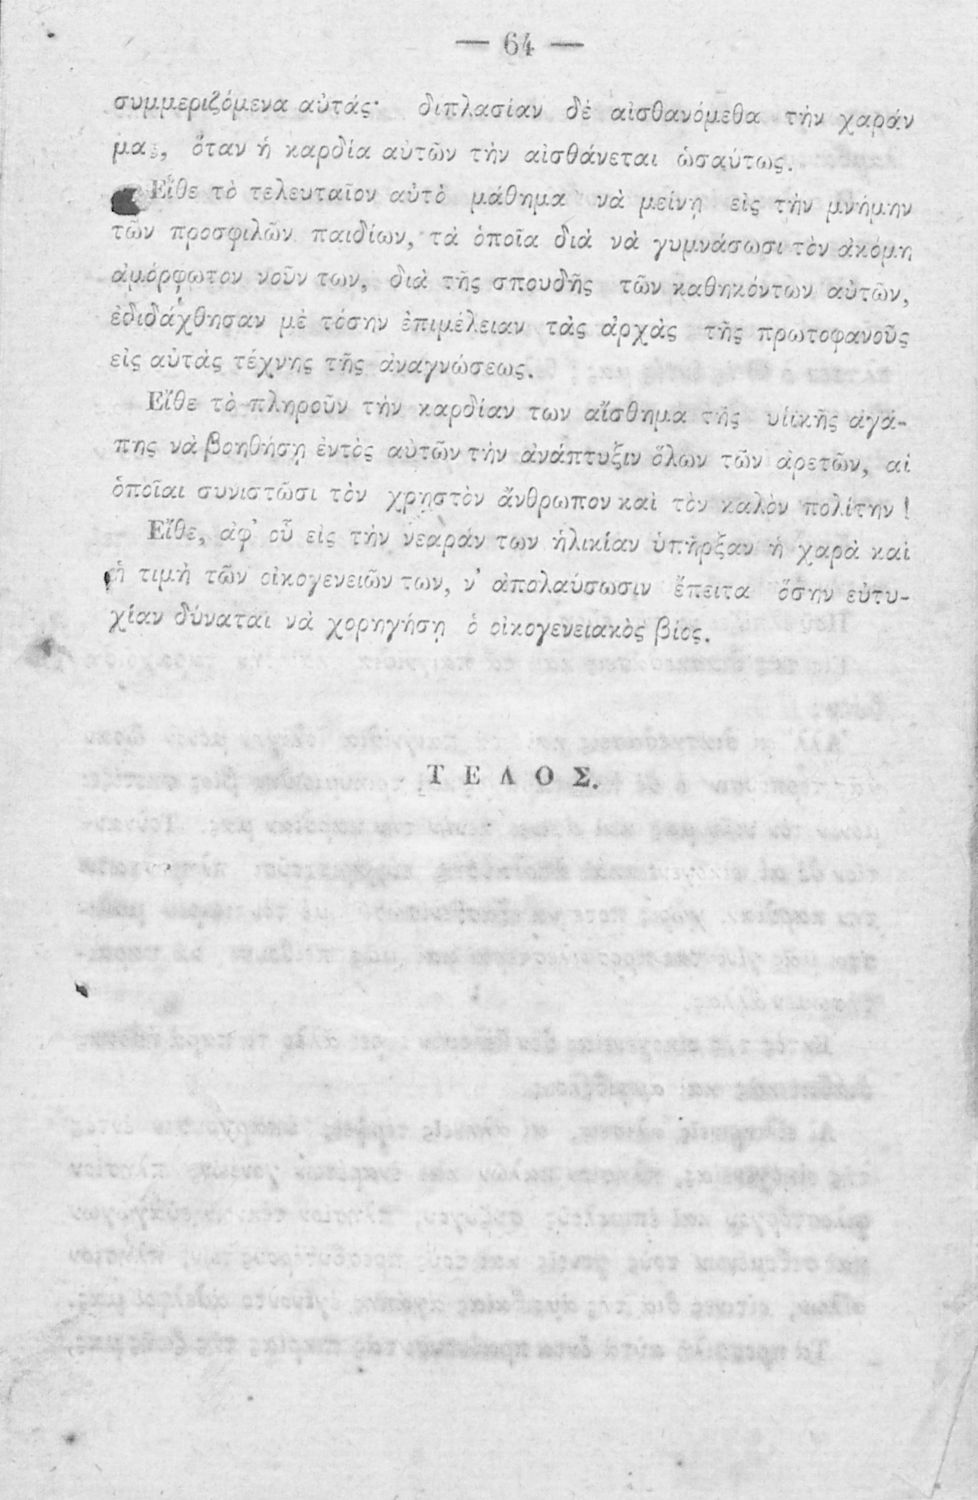 — 64 —
συμμεριζόμενα αὐτάς· διπλασίαν δὲ αἰσθανόμεθα τὴν χαράν
μας, ὅταν ἡ καρδία αὐτῶν τὴν αἰσθάνεται ὡσαύτως.
Εἴθε τὸ τελευταῖον αὐτὸ μάθημα νὰ μείνῃ εἰς τὴν μνήμην
τῶν προσφιλῶν παιδίων, τὰ ὁποῖα διὰ νὰ γυμνάσωσι τὸν ἀκόμη
ἀμόρφωτον νοῦν των, διὰ τῆς σπουδῆς τῶν καθηκόντων αὐτῶν,
ἐδιδάχθησαν μὲ τόσην ἐπιμέλειαν τὰς ἀρχὰς τῆς πρωτοφανοῦς
εἰς αὐτὰς τέχνης τῆς ἀναγνώσεως.
Εἴθε τὸ πληροῦν τὴν καρδίαν των αἴσθημα τῆς υἱικῆς ἀγά-
πης νὰ βοηθήσῃ ἐντὸς αὐτῶν τὴν ἀνάπτυξιν ὅλων τῶν ἀρετῶν, αἱ
ὁποῖαι συνιστῶσι τὸν χρηστὸν ἄνθρωπον καὶ τὸν καλὸν πολίτην !
Εἴθε, ἀφ' οὗ εἰς τὴν νεαράν των ἡλικίαν ὑπῆρξαν ἡ χαρὰ καὶ
ἡ τιμὴ τῶν οἰκογενειῶν των, ν' ἀπολαύσωσιν ἔπειτα ὅσην εὐτυ-
χίαν δύναται νὰ χορηγήσῃ ὁ οἰκογενειακὸς βίος.
ΤΕΛΟΣ.